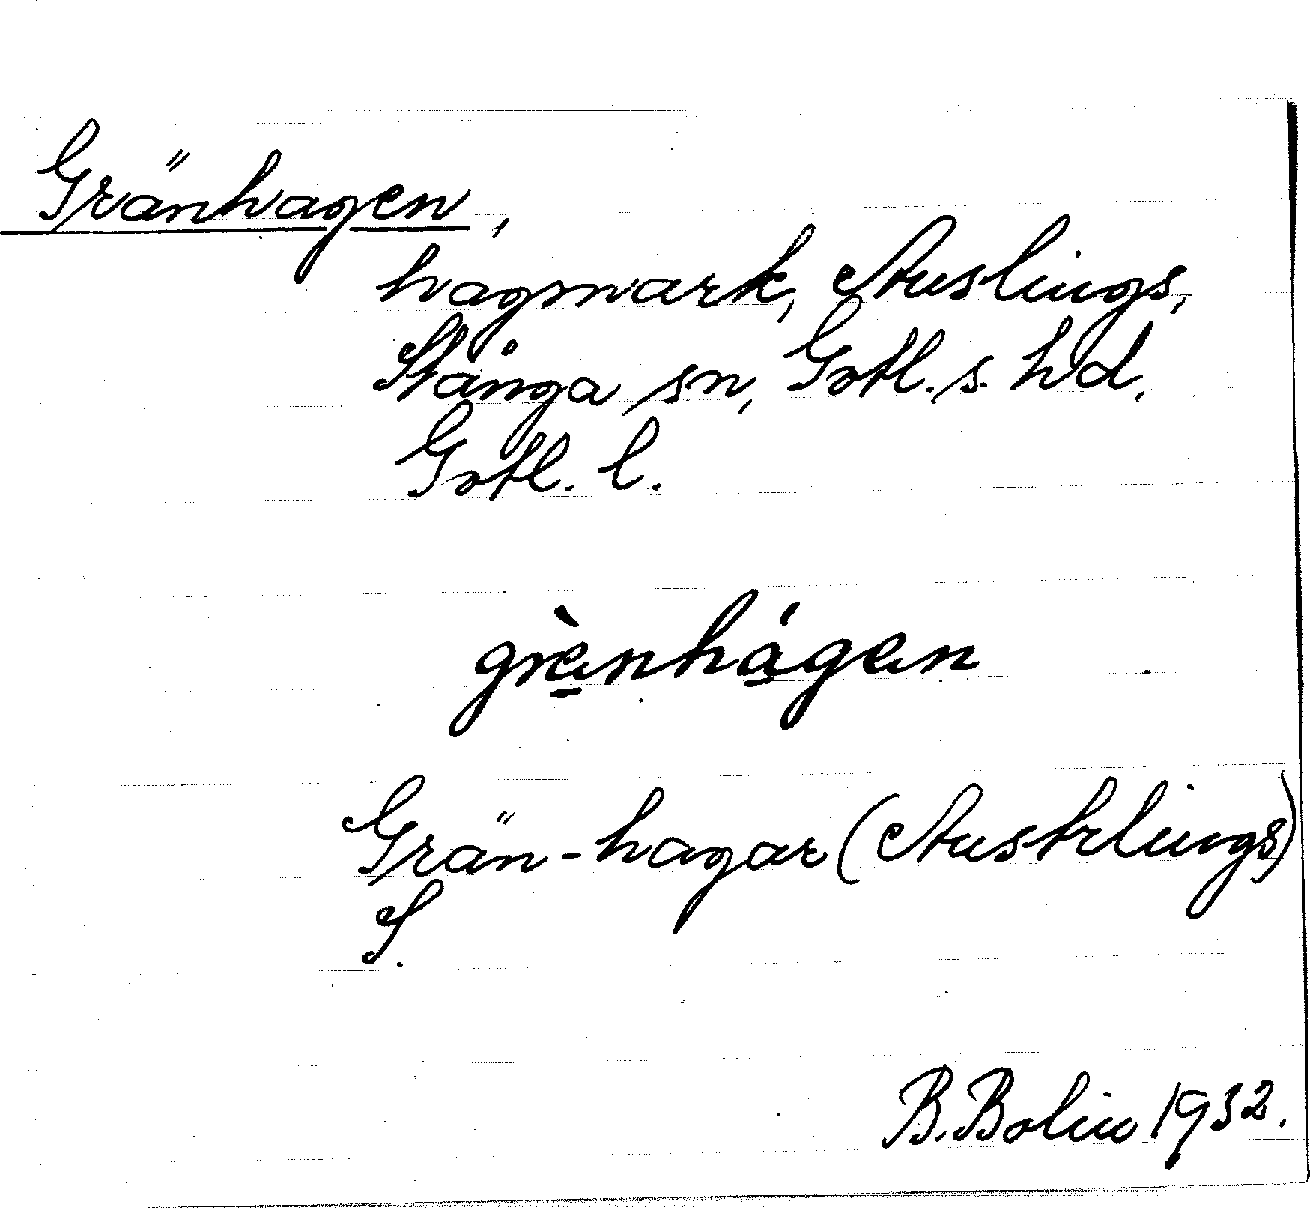 Gränhagen,
hagmark, Auslings,
Stånga sn, Gotl. s. hd.
Gotl. l.
grènhágen
Grän-hagar (Austrlings)
S.
B. Bolin 1932.